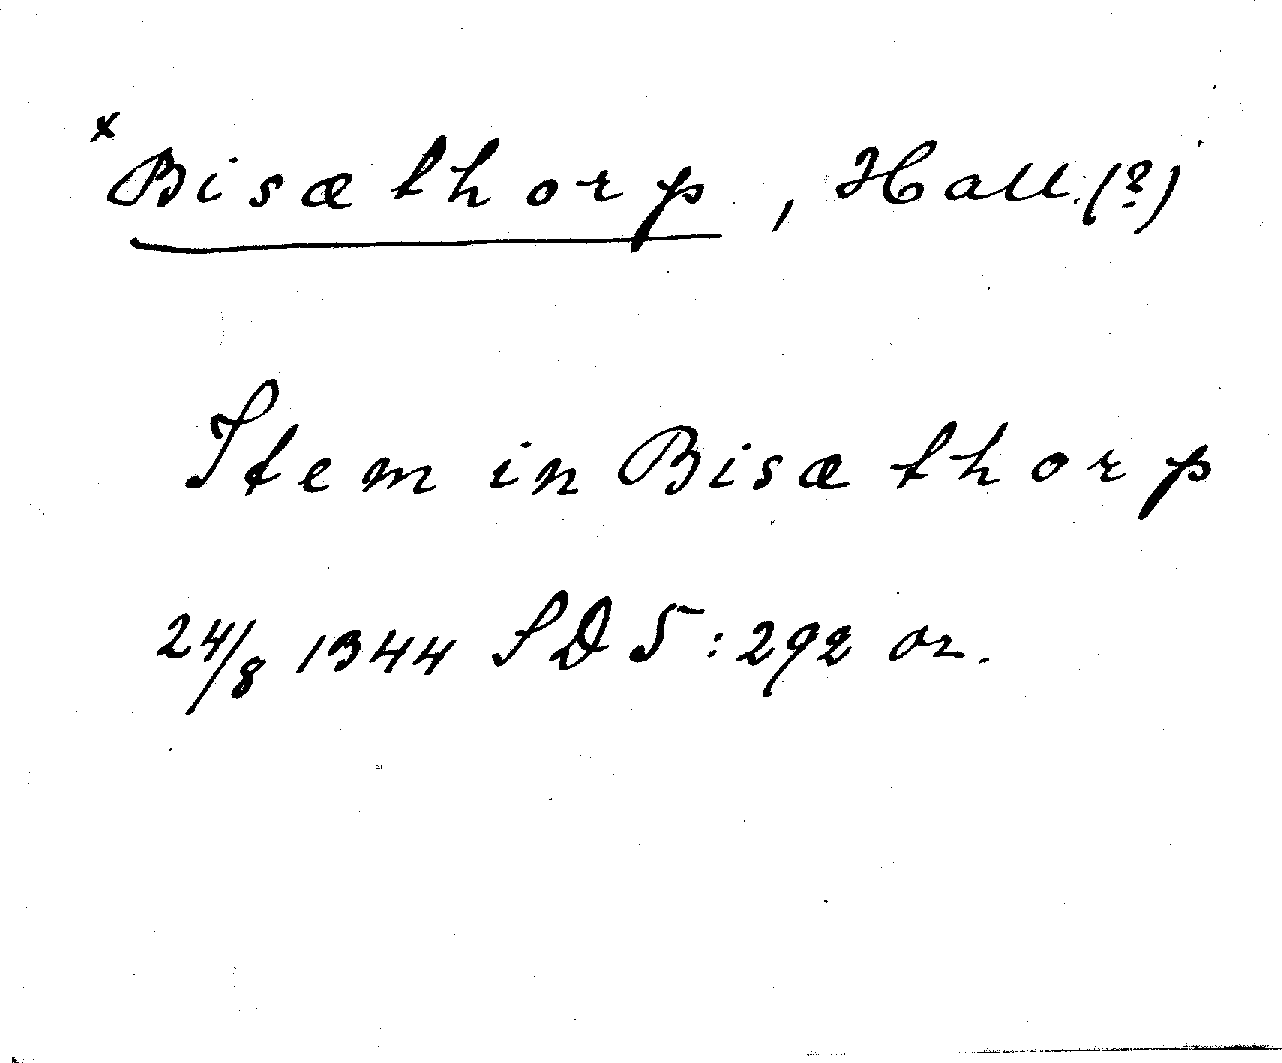 x Bisæthorp, Hall.(?)
Item in Bisæthorp
24/8 1344 SD 5:292 or.